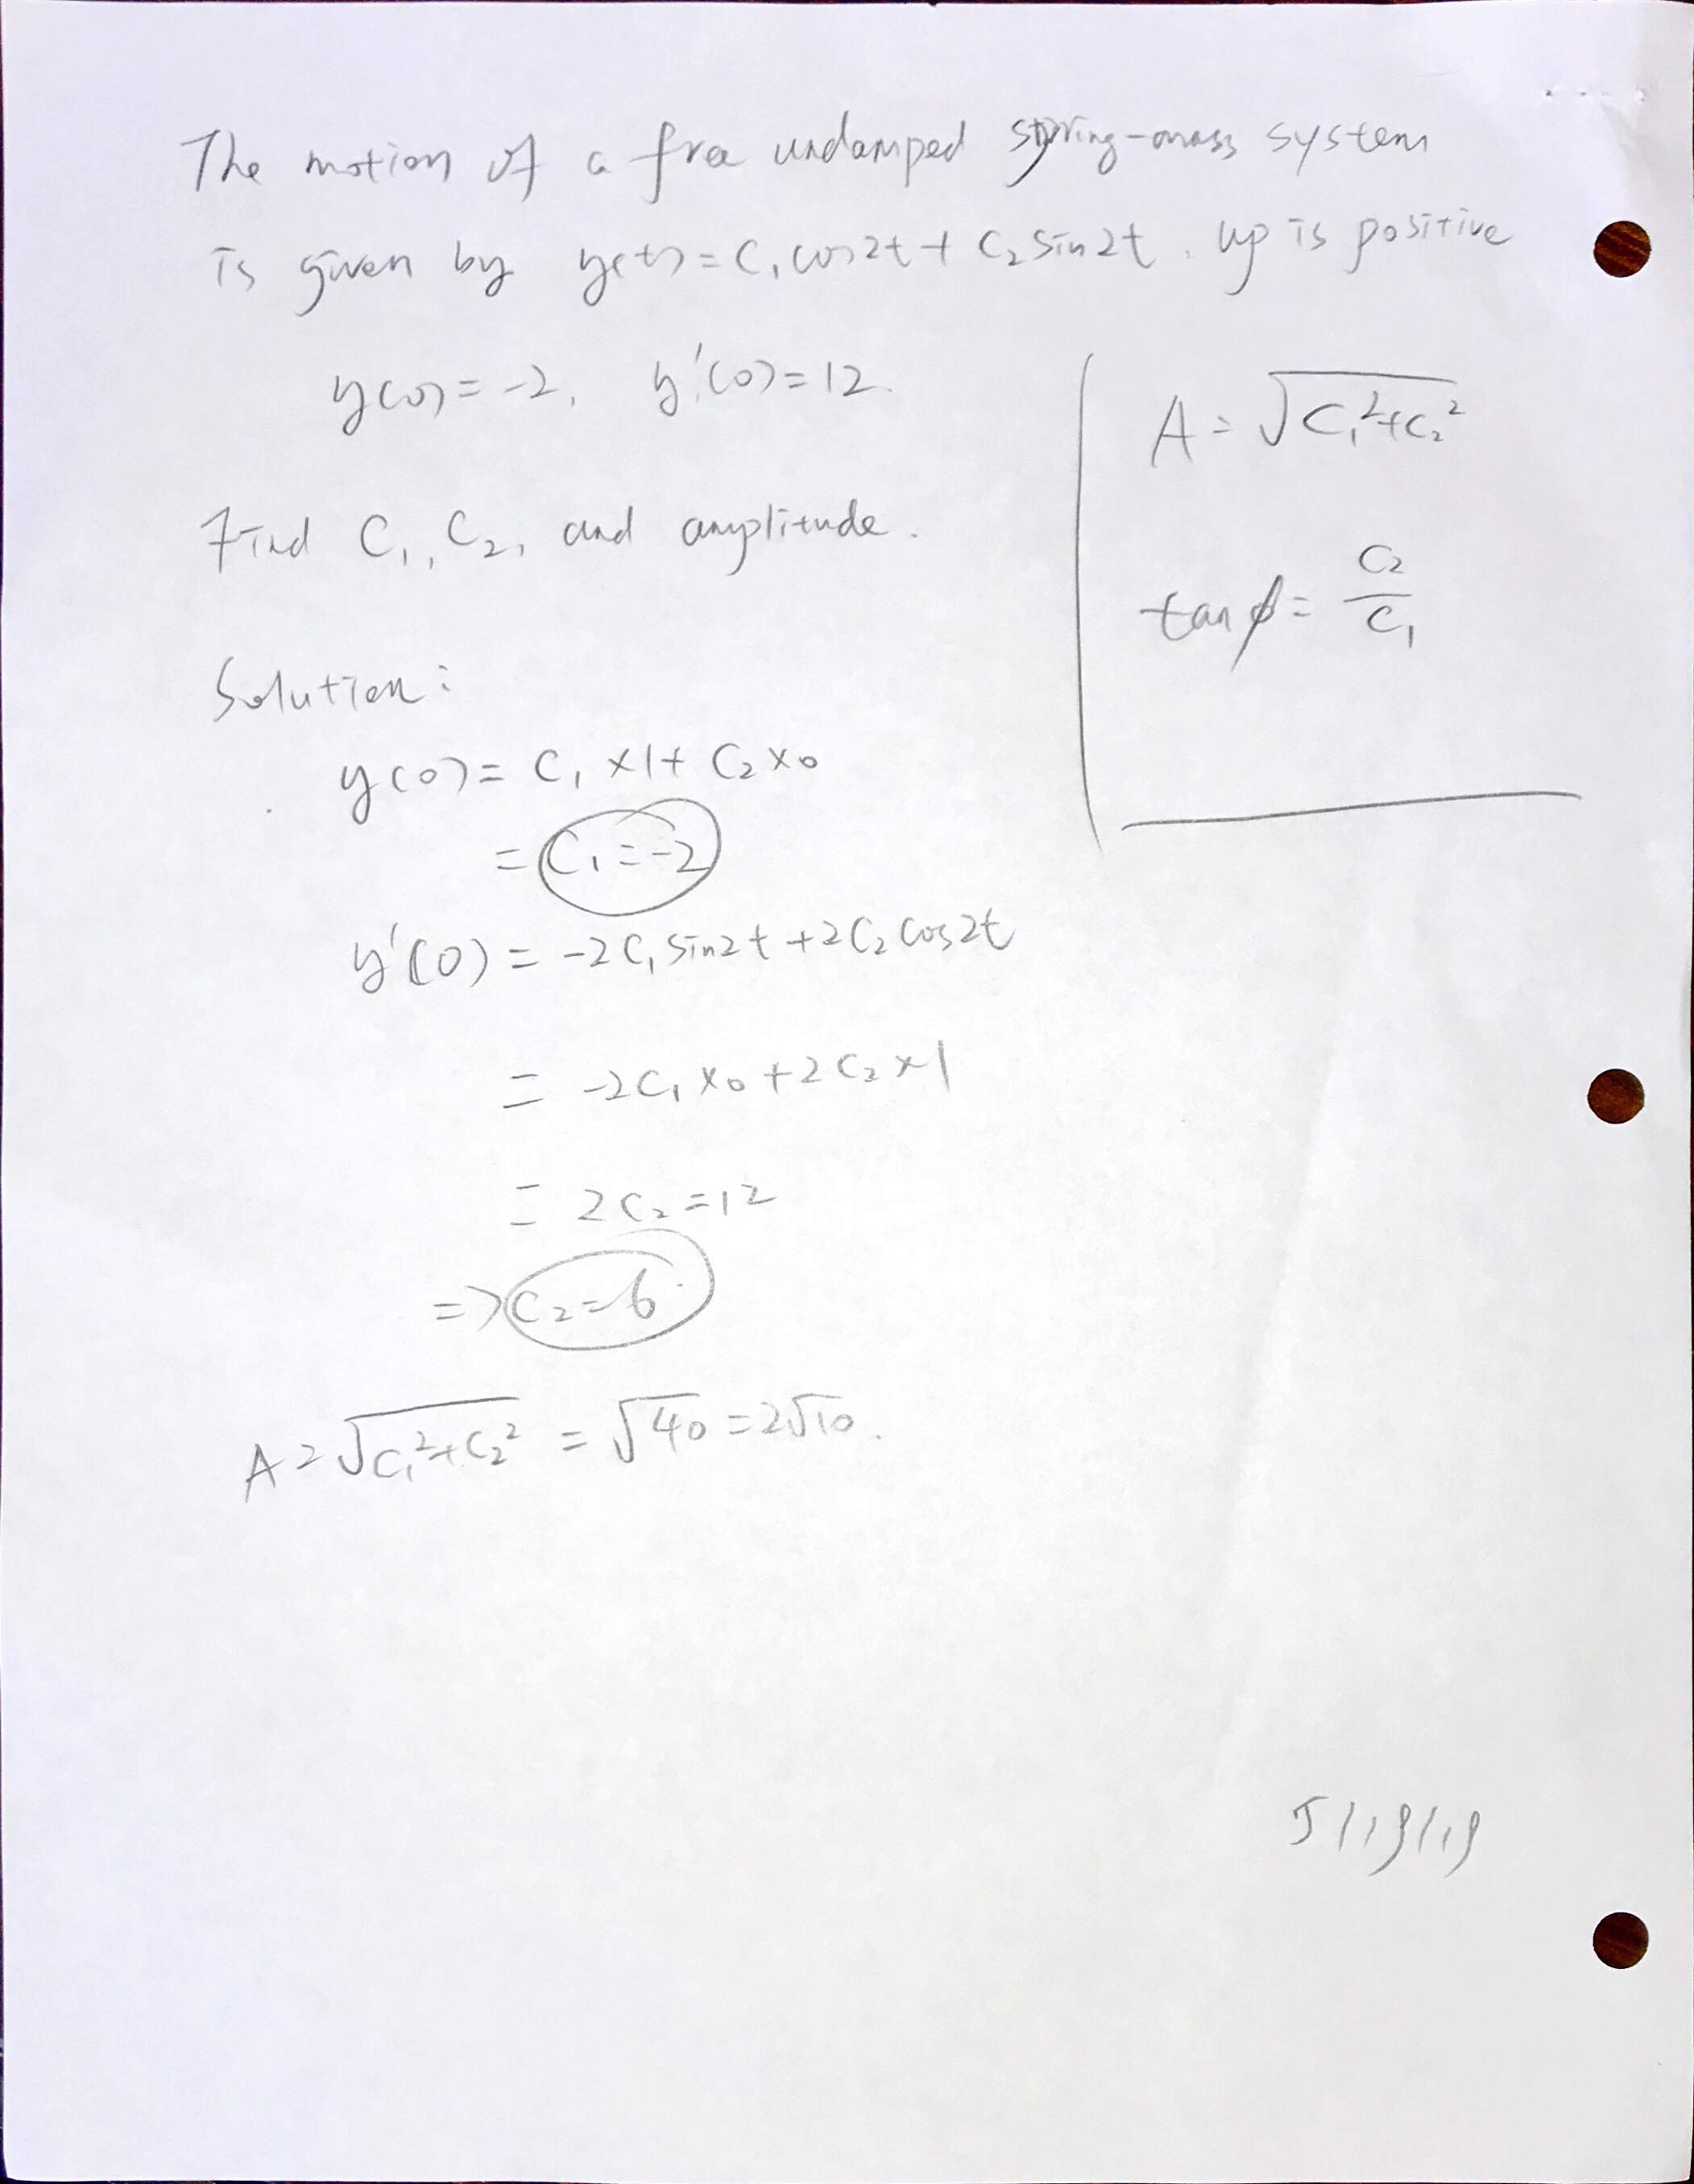 The motion of a free undamped spring-mass system
is given by y(t) = C₁ cos2t + C₂ sin2t. up is positive
y(0) = -2, y'(0) = 12.
Find C₁, C₂, and amplitude.
A = √(C₁²+C₂²)
tanϕ = C₂/C₁
Solution:
y(0) = C₁ ×1 + C₂ ×0
= C₁ = -2
y'(0) = -2C₁ sin2t + 2C₂ cos2t
= -2C₁ ×0 + 2C₂ ×1
= 2C₂ = 12
=> C₂ = 6.
A = √(C₁²+C₂²) = √40 = 2√10.
5/19/19